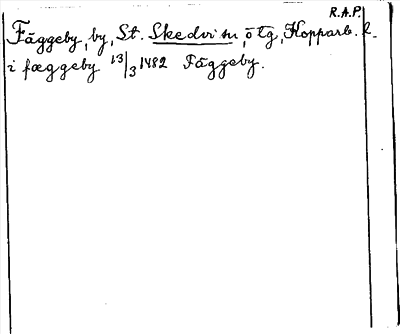 R.A.P.
Fäggeby, by, St. Skedvi sn, ö tg, Kopparb. l.
i fæggeby 13/3 1482 Fäggeby.